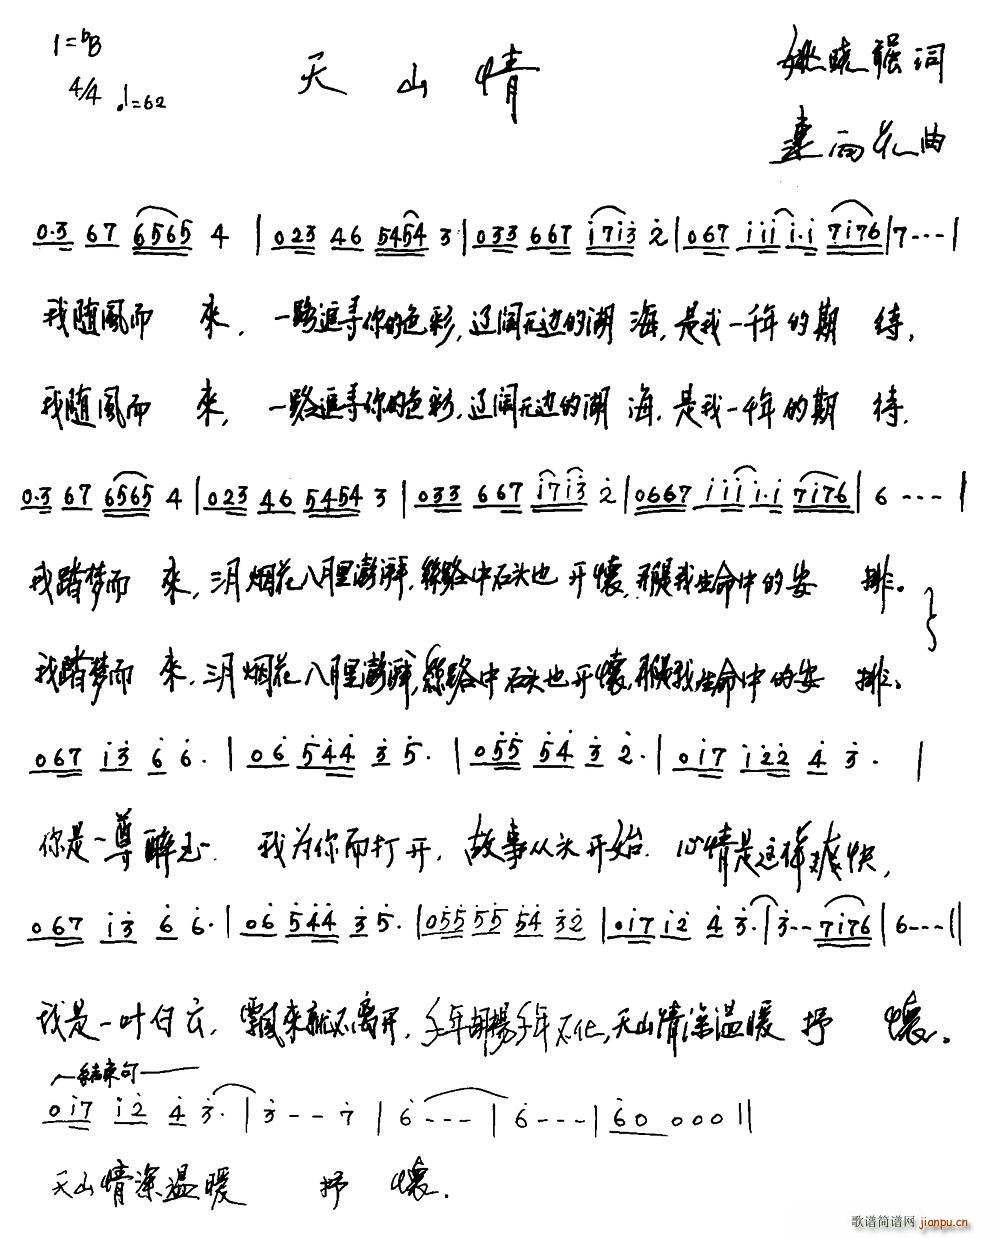 1=bB
天山情
姚晓强词
4/4 ♩=62
雨花曲
0·3 67 6565 4 | 023 46 5454 3 | 033 667 i7i3 2 | 067 iii i·i 7i76 | 7--- |
我随風而來，一路追寻你的色彩，辽阔无边的湖海，是我一千年的期待，
我随風而來，一路追寻你的色彩，辽阔无边的湖海，是我一千年的期待，
0·3 67 6565 4 | 023 46 5454 3 | 033 667 i7i3 2 | 0667 iii i·i 7i76 | 6--- |
我踏梦而來，三月烟花八月里澎湃，絲路中石头也开懷，那是我生命中的安排。
我踏梦而來，三月烟花八月里澎湃，絲路中石头也开懷，那是我生命中的安排。
067 i3 6 6· | 06 544 3 5· | 055 54 3 2· | 0i7 i22 4 3· |
你是一尊醉玉，我为你而打开，故事从头开始，心情是这样爽快，
067 i3 6 6· | 06 544 3 5· | 055 55 54 32 | 0i7 i2 4 3· | 3--7i76 | 6--- ||
我是一叶白云，飘来就不离开，千年胡楊千年不化，天山情深温暖抒懷。
结束句
0i7 i2 4 3· | 3--7 | 6--- | 6--- | 60 000 ||
天山情深温暖抒懷．
歌谱简谱网 jianpu.cn